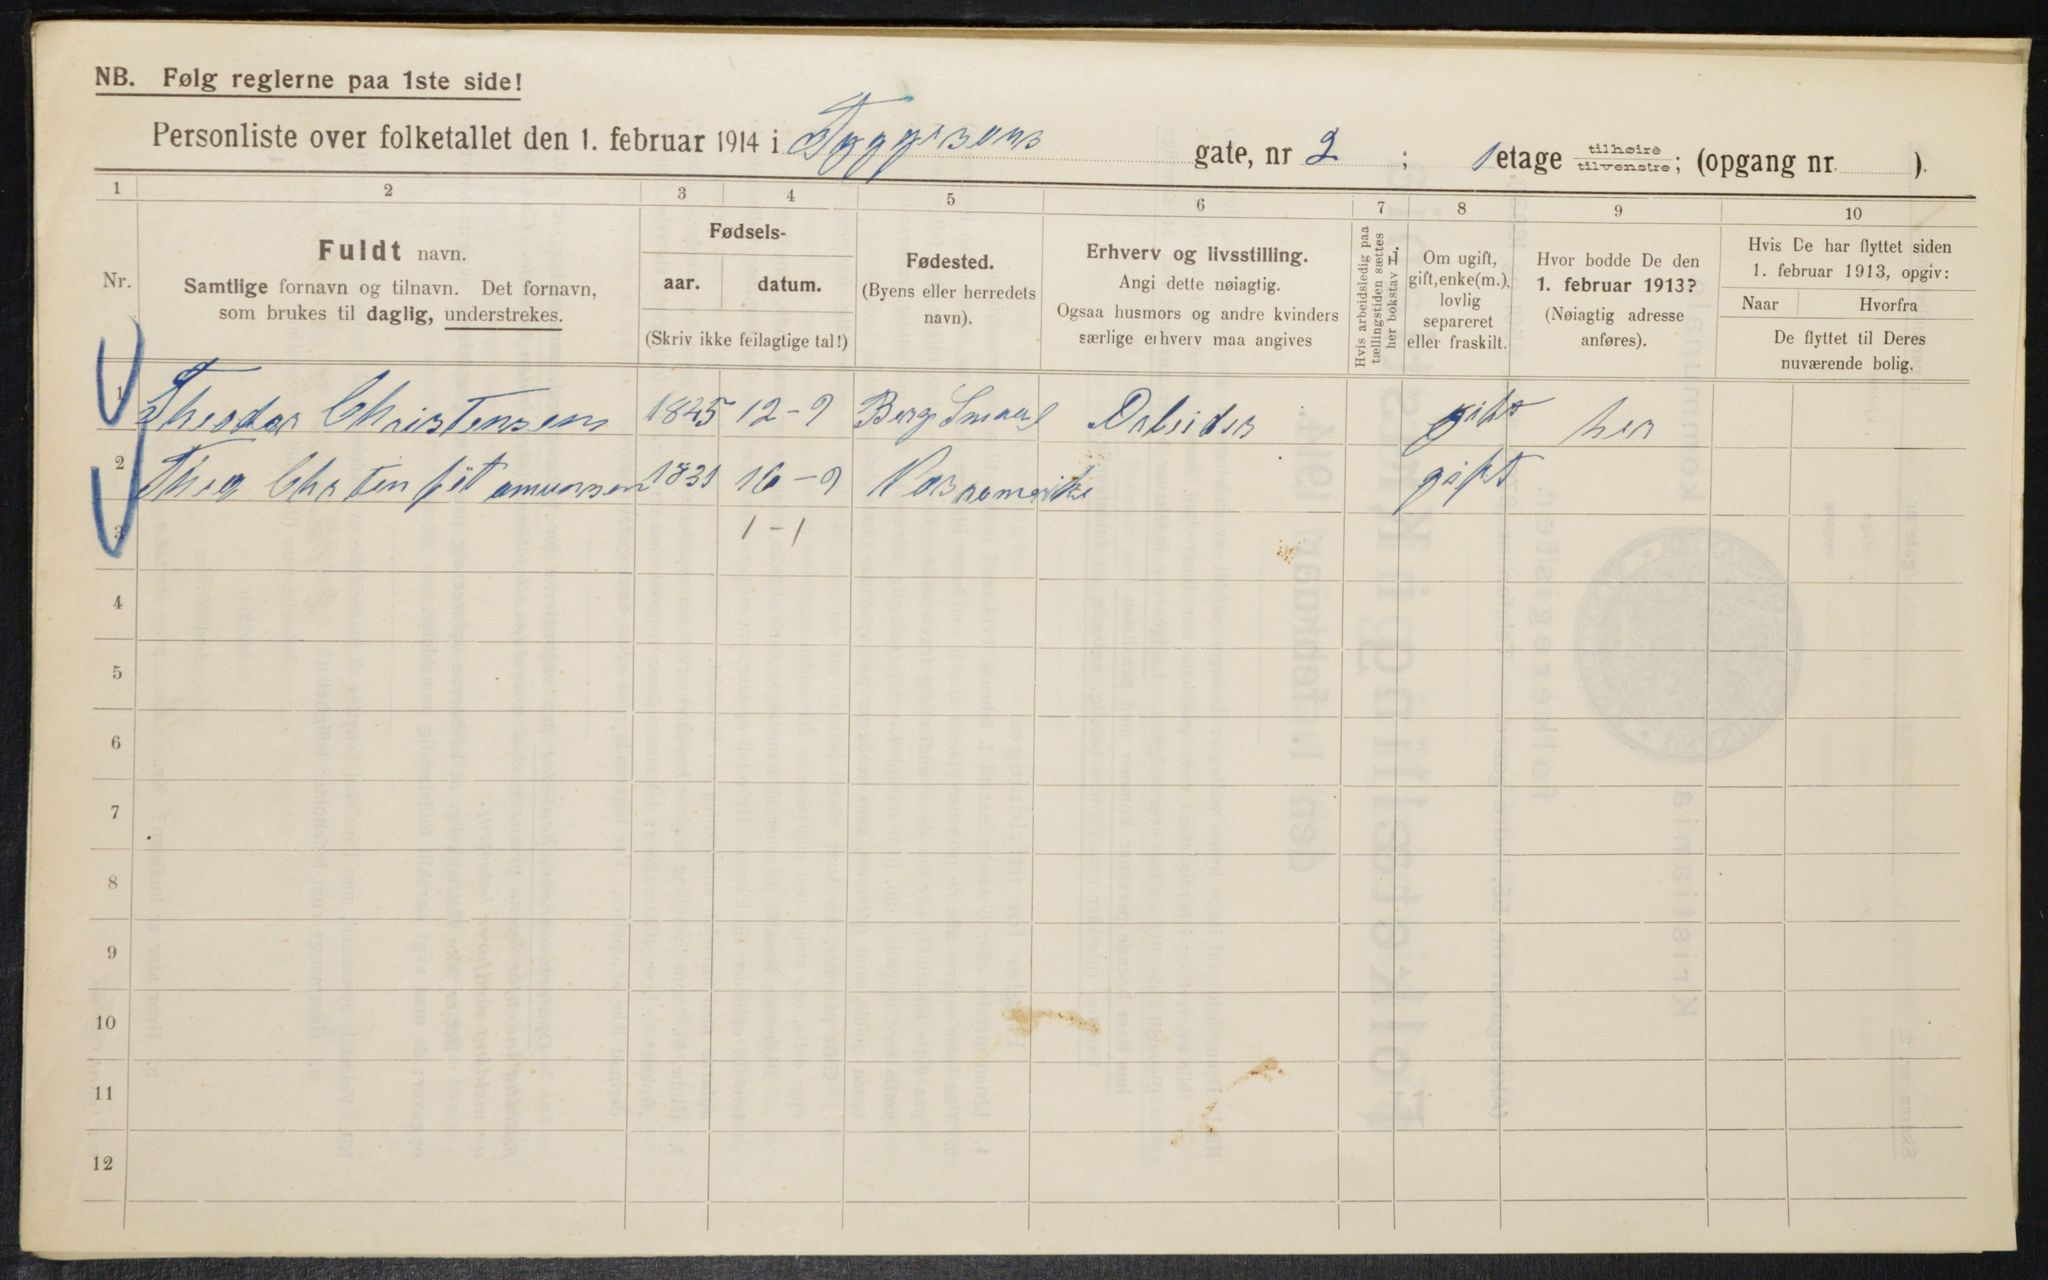 NB. Følg reglerne paa 1ste side!
Personliste over folketallet den 1. februar 1914 i Tyggesons gate, nr 2 ; 1 etage tilhøire tilvenstre; (opgang nr. ).
1 2 3 4 5 6 7 8 9 10
Nr.
Fuldt navn.
Samtlige fornavn og tilnavn. Det fornavn,
som brukes til daglig, understrekes.
Fødsels-
aar. datum.
(Skriv ikke feilagtige tal!)
Fødested.
(Byens eller herredets
navn).
Erhverv og livsstilling.
Angi dette nøiagtig.
Ogsaa husmors og andre kvinders
særlige erhverv maa angives
Hvis arbeidsledig paa
tællingstiden sættes
her bokstav L.
Om ugift,
gift, enke(m.),
lovlig
separeret
eller fraskilt.
Hvor bodde De den
1. februar 1913?
(Nøiagtig adresse
anføres).
Hvis De har flyttet siden
1. februar 1913, opgiv:
Naar Hvorfra
De flyttet til Deres
nuværende bolig.
1 Theodor Christensen 1845 12-9 Berg Smaal Arbeider gift her
2 Thea amunsen 1831 16-9 Nas romerike gift
3 1-1
4
5
6
7
8
9
10
11
12